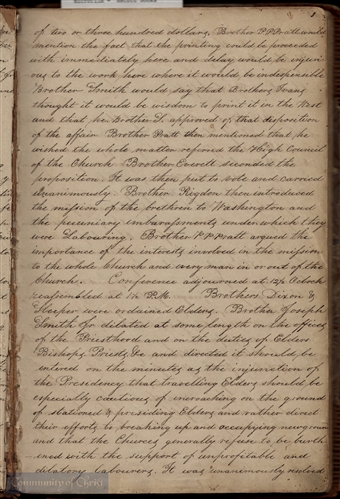 of two or three hundred dollars, Brother P P Pratt would
mention the fact that the printing could be proceeded
with immediately here and delay would be injuri-
ous to the work here where it would be indispensible
Brother Smith would say that Brothers Evans
thought it would be wisdom to print it in the West
and that he Brother S. approved of that disposition
of the affair Brother Pratt then mentioned that he
wished the whole matter refered the High Council
of the Church Broother Everett seconded the
proposition. It was then put to vote and carried
Unanimously Brother Rigdon then introduced
the mission of the brethren to Washington and
the pecuniary embarassments under which they
were Labouring. Brother P P Pratt argued the
importance of the interests involved in the mission
to the whole Church and every man in or out of the
Church. Conference adjourned at 12½ Oclock
reassembled at 1½ P.M. Brothers Dixon &
Sleeper were ordained Elders. Brother Joseph
Smith Jr dilated at some length on the offices
of the Priesthood and on the duties of Elders
Bishops, Priests &c and directed it should be
entered on the minutes as the injunction of
the Presidency that travelling Elders should be
especially cautious of encroaching on the ground
of stationed & presiding Elders and rather direct
their efforts to breaking up and occupying new ground
and that the Churces generally refuse to be burth
ened with the support of unprofitable and
dilatory labourers. It was unanimously resolved
Community of Christ